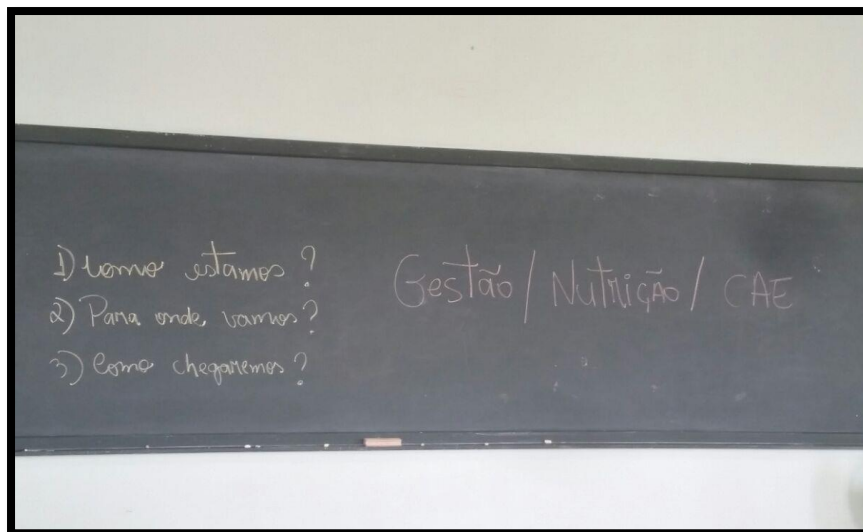 1) Como estamos?
2) Para onde vamos?
3) Como chegaremos?
Gestão / Nutrição / CAE